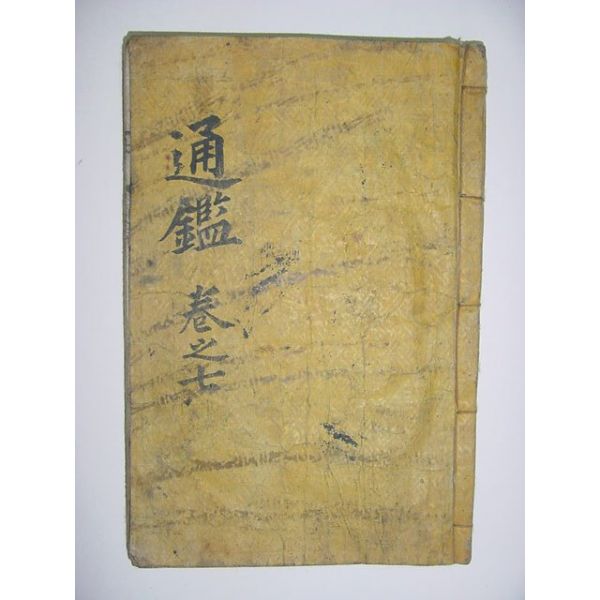 通鑑 卷之七